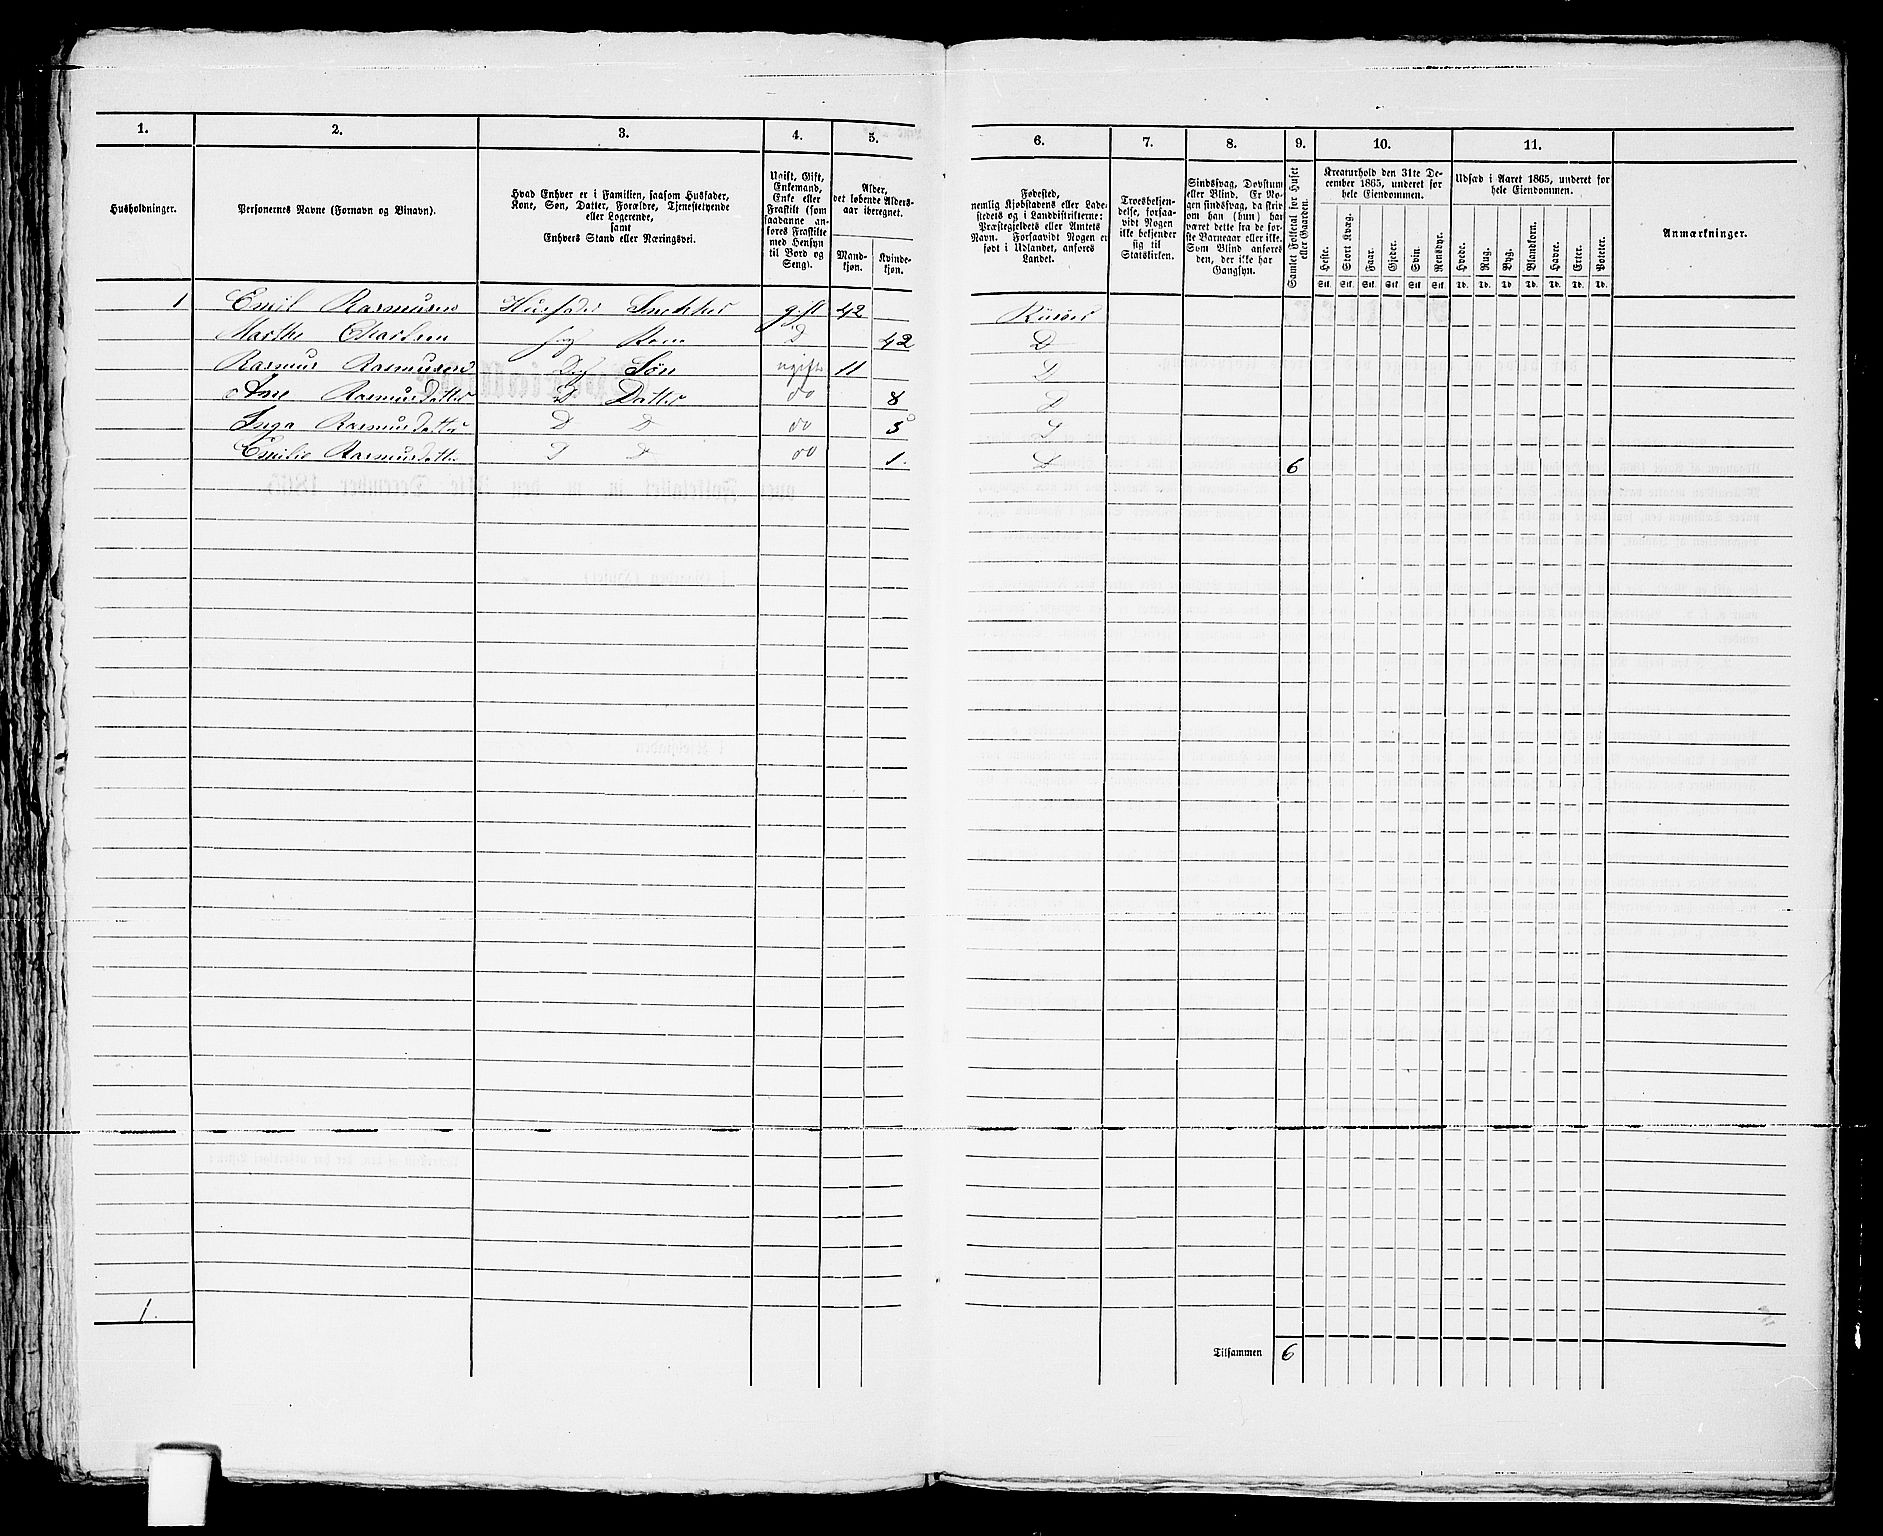 1. 2. 3. 4. 5. 6. 7. 8. 9. 10. 11.
Husholdninger.
Personernes Navne (Fornavn og Binavn).
Hvad Enhver er i Familien, saasom Husfader,
Kone, Søn, Datter, Forældre, Tjenestetyende
eller Logerende,
samt
Enhvers Stand eller Næringsvei.
Ugift, Gift,
Enkemand,
Enke eller
Fraskilt (som
saadanne an-
føres Fraskilte
med Hensyn
til Bord og
Seng).
Alder,
det løbende Alders-
aar iberegnet.
Mand-
kjøn.
Kvinde-
kjøn.
Fødested,
nemlig Kjøbstadens eller Lade-
stedets og i Landdistrikterne:
Præstegjeldets eller Amtets
Navn. Forsaavidt Nogen er
født i Udlandet, anføres
Landet.
Troesbekjen-
delse, forsaa-
vidt Nogen
ikke bekjender
sig til
Statskirken.
Sindssvag, Døvstum
eller Blind. Er No-
gen sindssvag, da skriv
om han (hun) har
været dette fra de før-
ste Barneaar eller ikke.
Som Blind anføres
den, der ikke har
Gangsyn.
Samlet Folketal for Huset
eller Gaarden.
Kreaturhold den 31te De-
cember 1865, underet for
hele Eiendommen.
Heste. Stort Kvæg. Faar. Gjeder. Svin. Rensdyr.
Stk. Stk. Stk. Stk. Stk. Stk.
Udsæd i Aaret 1865, underet for
hele Eiendommen.
Hvede. Rug. Byg. Blandkorn. Havre. Erter. Poteter.
Td. Td. Td. Td. Td. Td. Td.
Anmærkninger.
1 Emil Rasmusen Husfader Snekker gift 42 Riisør
Marthe Charlsen Kone D 42 D
Rasmus Rasmusen Søn ugift 11 D
Ane Rasmusdatter D Datter do 8 D
Inga Rasmusdatter D D do 5 D
Emilie Rasmusdatter D D do 1. D 6
1.
Tilsammen 6